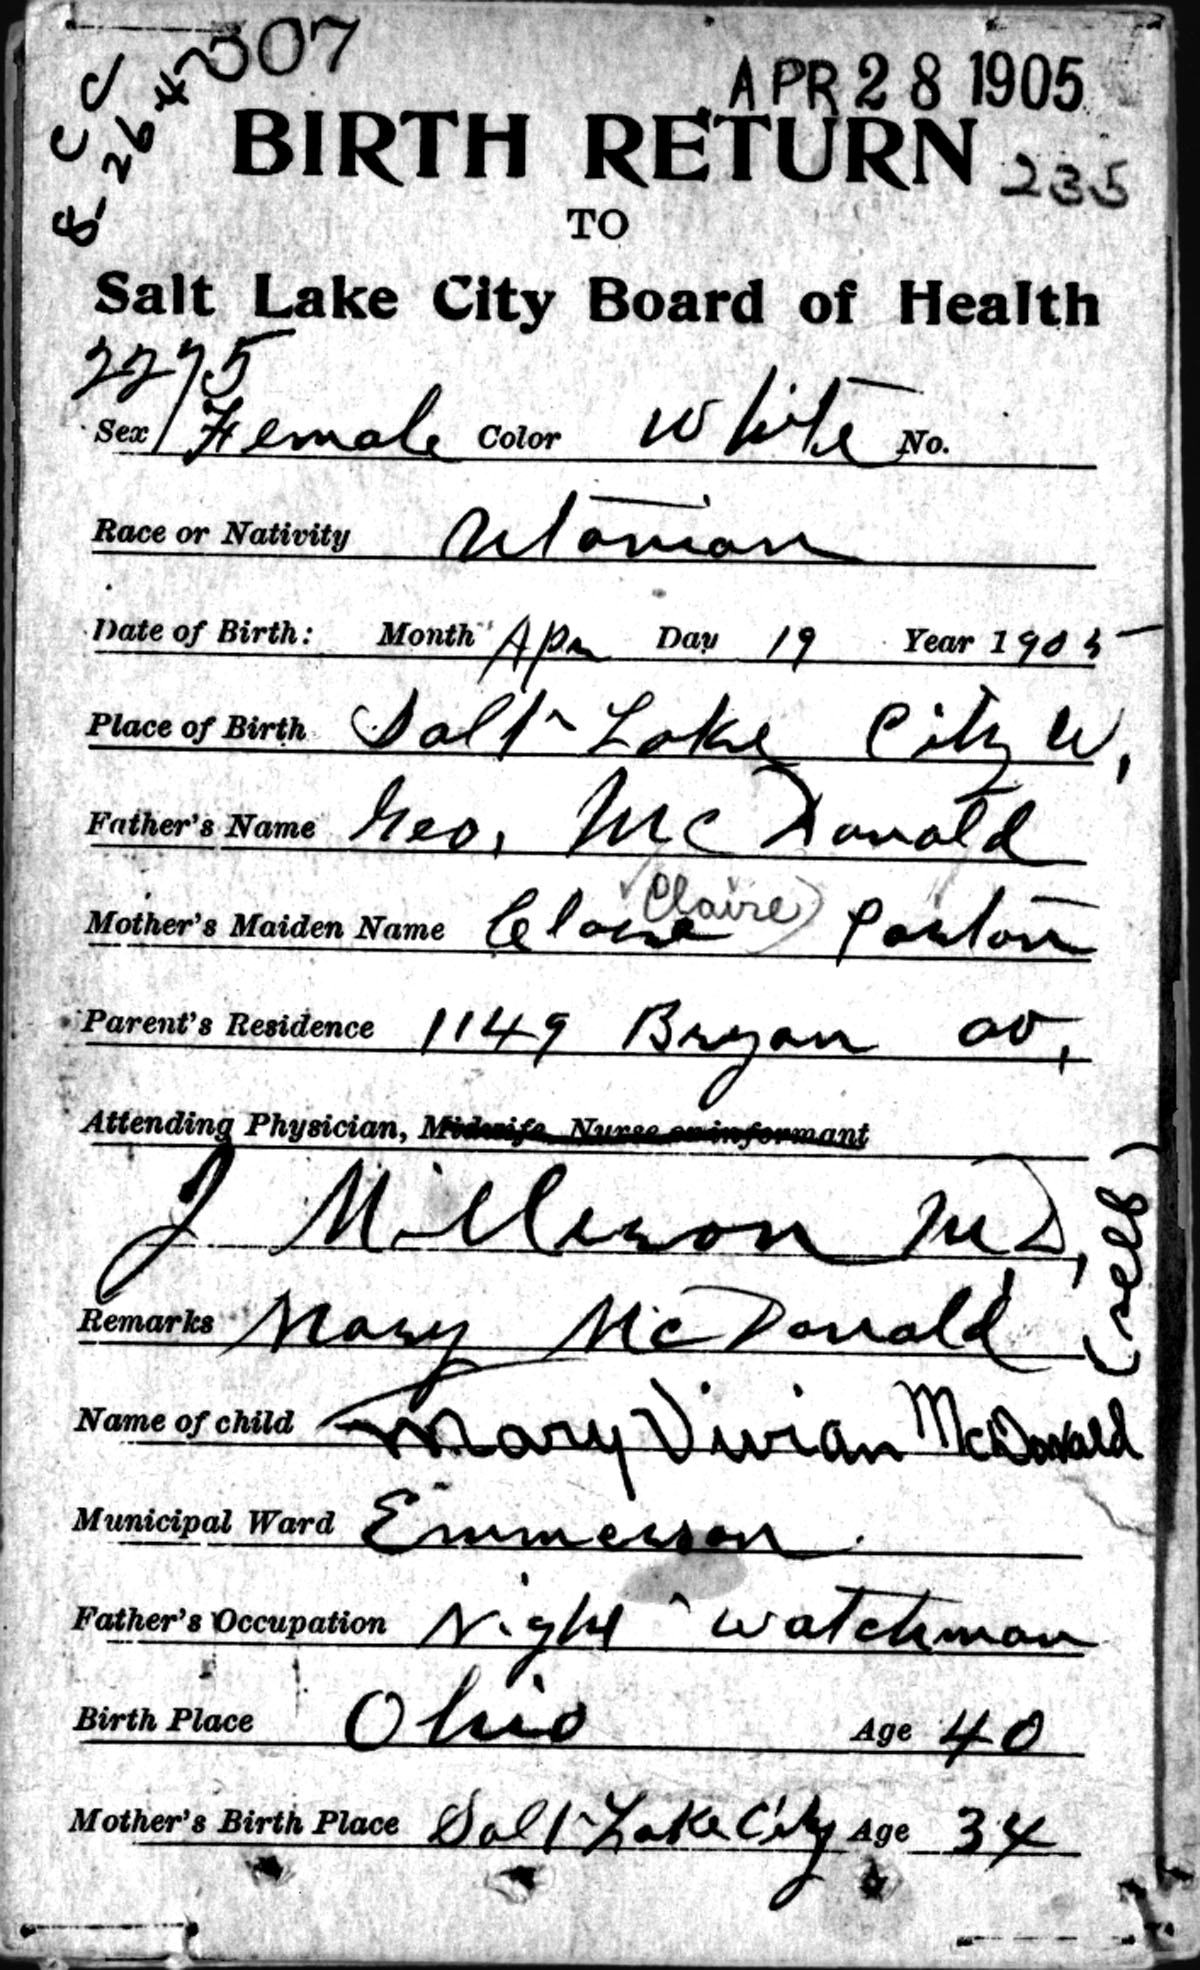 507
APR 28 1905
C C C
8-26-42
BIRTH RETURN
235
TO
Salt Lake City Board of Health
2275
Sex Female Color White No.
Race or Nativity Utanian
Date of Birth: Month Apr Day 19 Year 1905
Place of Birth Salt Lake City U,
Father's Name Geo, McDonald
Claire)
Mother's Maiden Name Claire Paxton
Parent's Residence 1149 Bryan av,
Attending Physician, Midwife, Nurse or informant
J Milleson MD,
Remarks Mary McDonald
Name of child Mary Vivian McDonald
Municipal Ward Emmerson
Father's Occupation Night watchman
Birth Place Ohio Age 40
Mother's Birth Place Salt Lake City Age 34